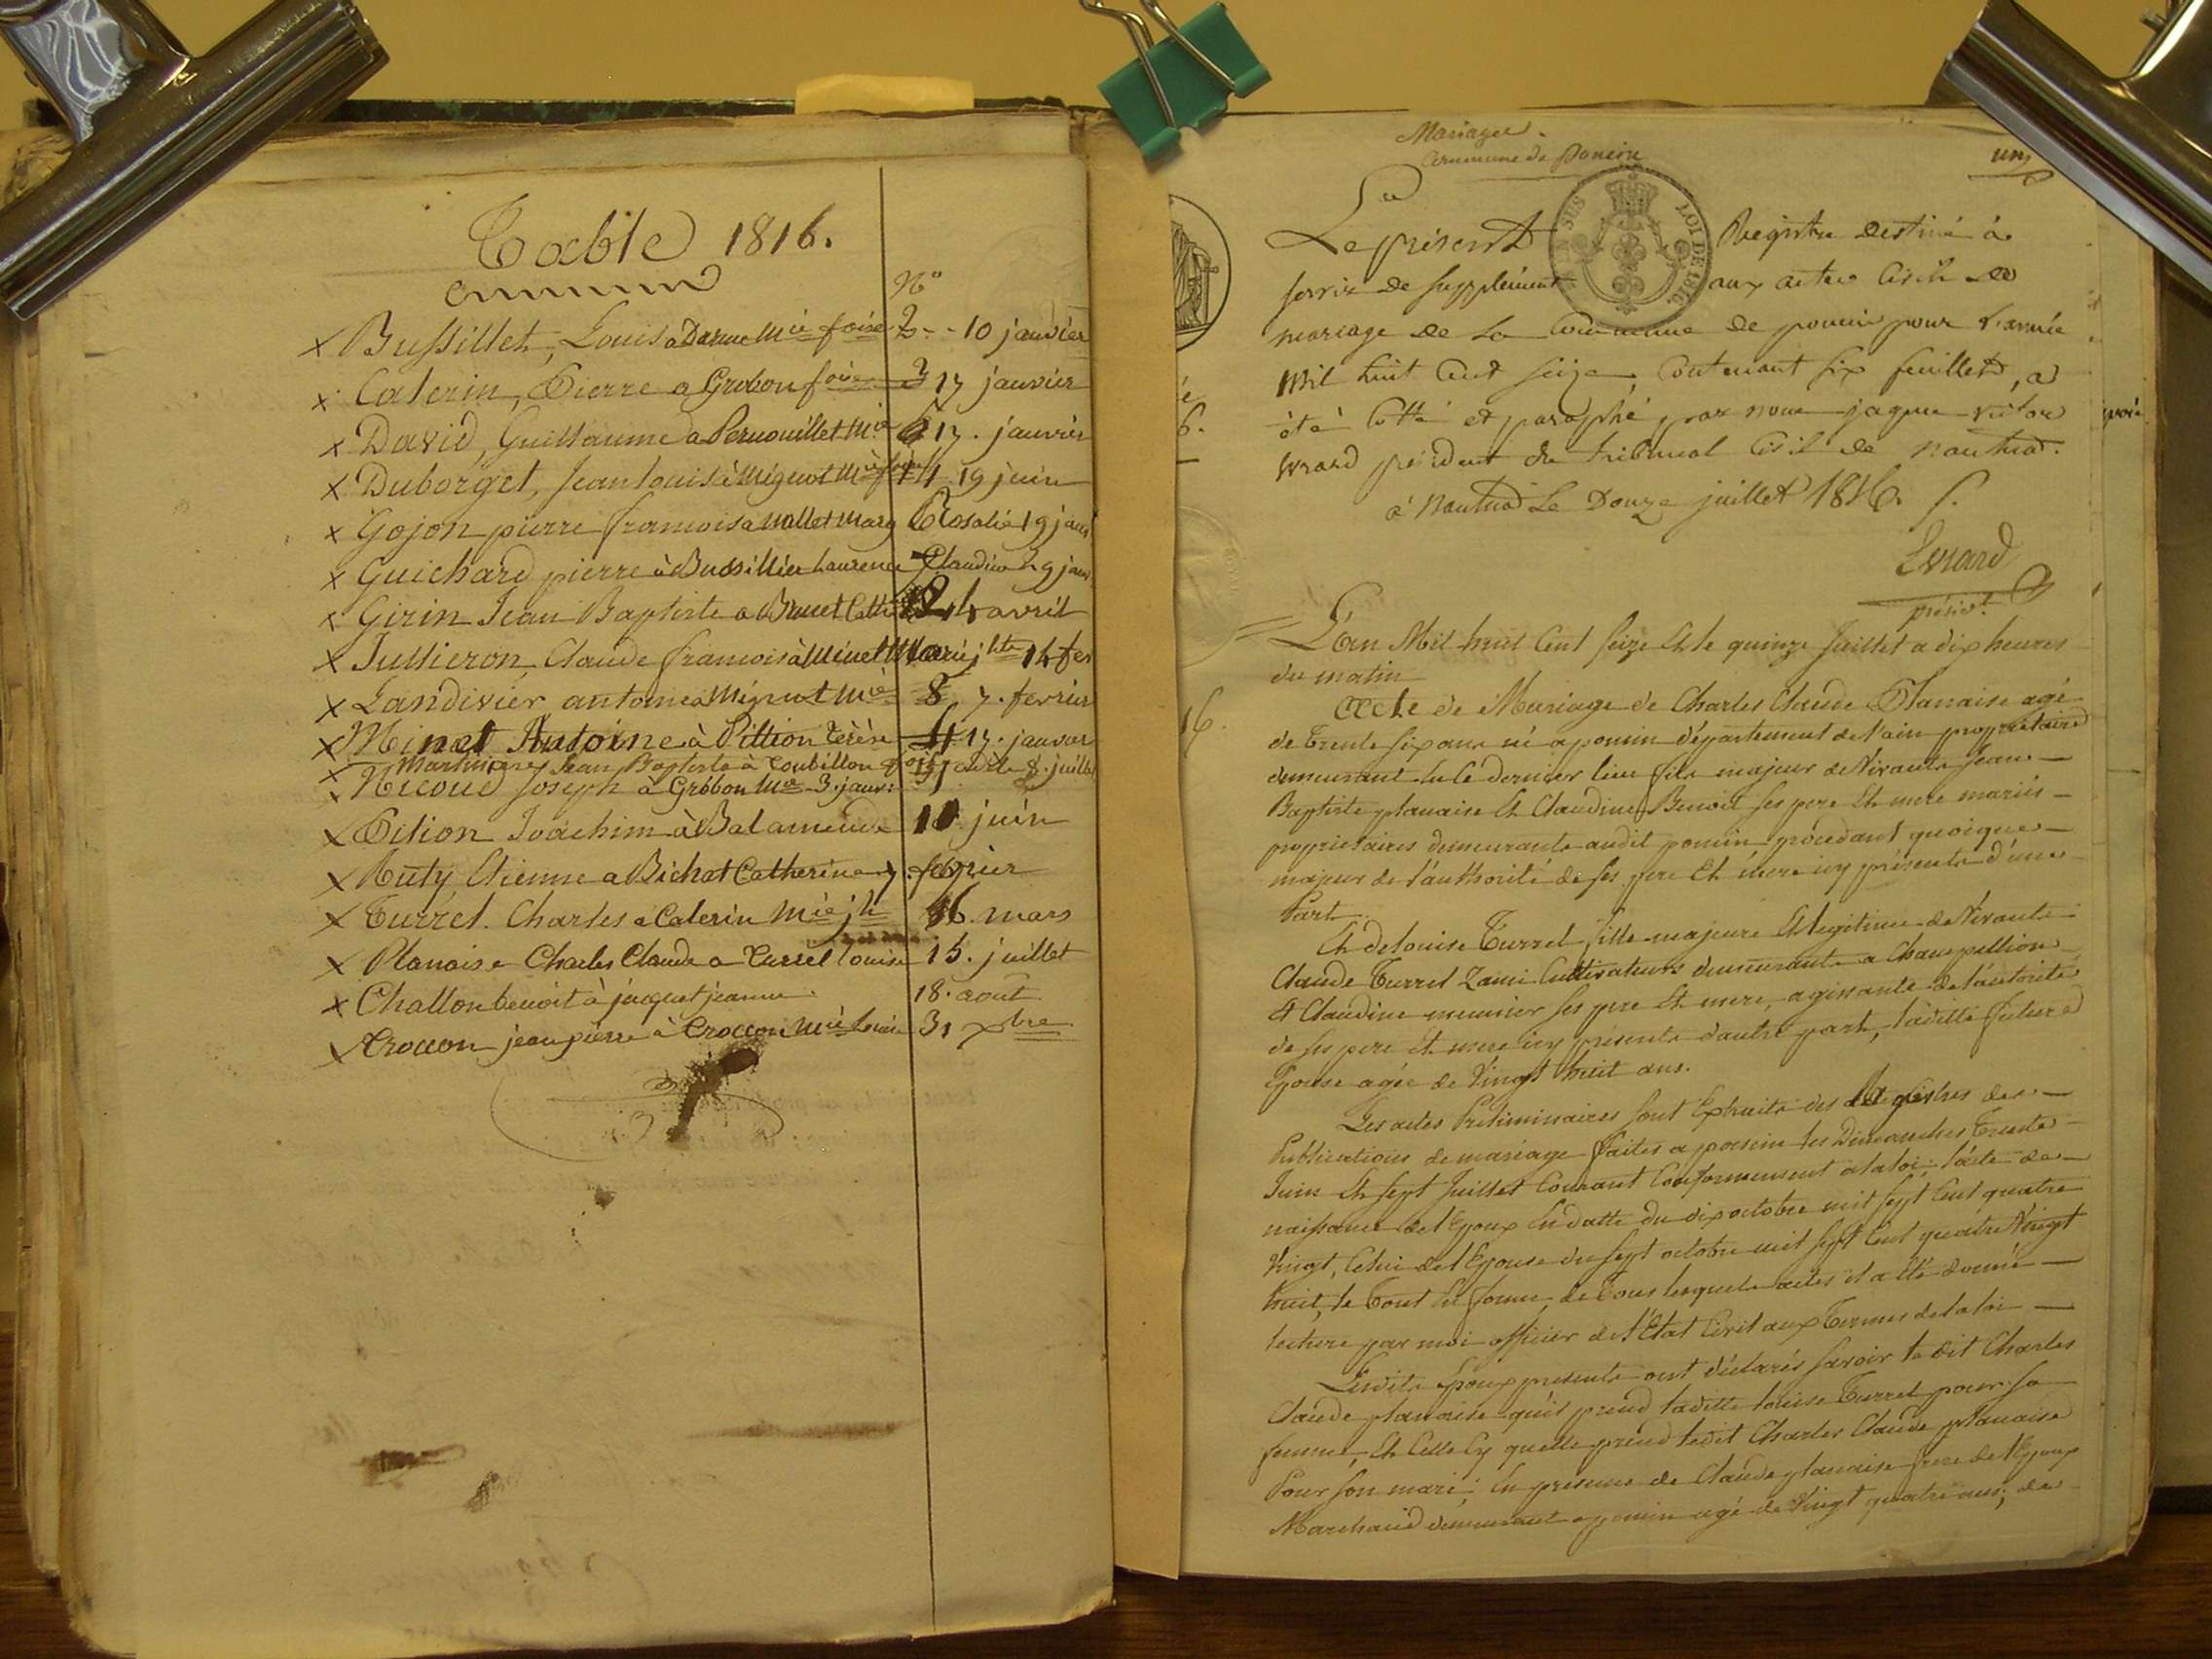 Table 1816.
N°
x Bussillet, Louis a Darme Mie foise 2 - - 10 janvier
x Caterin, Pierre a Grobon foise 3 17 janvier
x David, Guillaume a Pernouillet Mie 6 17. janvier
x Duborget, Jean louis à Mignot 11 19 juin
x Gojon pierre francois a Mallet Marg Rosalie 19 janv
x Guichard pierre à Bussillier Laurence Claudine 29 janv.
x Girin Jean Baptiste a Bruet Cath 24 avril
x Jullieron, Claude francois à Minet Marie jhte 14 fer
x Landivier antoine a Mignot Mie 8 7. fevrier
x Minet Antoine à Pittion Térèse 4 17. janvier
x Jean Baptiste à Coubillon 8. juillet
x Nicoud Joseph à Gröbon Mie 3. janv:
x Pition Joachim à Balamende 10 juin
x Ruty Etienne a Bichat Catherine 7. fevrier
x Turrel. Charles a Caterin Mie jh 16. mars
x Planaise Charles Claude a Turrel louise 15. juillet
x Challon benoit à jacquet jeanne. 18. aout
x Croccon jean pierre à Croccon Mie louise 31 xbre
Mariages.
Commune de Poncin
un
Le présent Registre destiné à
servir de supplément aux actes civils de
mariage de la Commune de poncin pour l'année
Mil huit Cent seize, Contenant six feuillets, a
été Cotté et paraphé par nous jaques victor
Evrard président du tribunal Civil de Nantua.
à Nantua Le Douze juillet 1816.
Evrard
présidt.
LOI DE 1816.
L'an Mil huit Cent seize Et le quinze Juillet a dix heures
du matin
Acte de Mariage de Charles Claude Planaise agé
de trente six ans né a poncin département de l'ain propriétaire
demeurant au Ce dernier lieu fils majeur de Vivants Jean
Baptiste planaise Et Claudine Benoit ses pere Et mere mariés
propriétaires demeurants audit poncin procédant quoique
majeur de l'authorité de ses pere Et mere icy présents d'une
Part.
Et de louise Turrel fille majeure Et legitime de Vivants
Claude Turrel Lami Cultivateurs demeurants a Champeillion
& Claudine meunier ses pere Et mere, agissante de l'autorité
de ses pere Et mere icy présents d'autre part, ladite future
Epouse agée de Vingt huit ans.
Les actes Préliminaires sont Extraits des Registres des
Publications de mariage faites a poncin les Dimanches trente
Juin Et sept Juillet Courant Conformement a la loi, l'acte de
naissance de l'Epoux En datte du dix octobre mil sept Cent quatre
Vingt, Celui de l'Epouse du sept octobre mil sept Cent quatre Vingt
huit, le Tout En forme, de Tous lesquels actes il a été donné
lecture par moi officier de l'Etat Civil aux Termes de la loi
Lesdits Epoux presents ont déclarés savoir le dit Charles
Claude planaise qu'il prend ladite louise Turrel pour sa
femme, Et Celle Cy quelle prend ledit Charles Claude planaise
Pour son mari; En presence de Claude planaise frere de l'Epoux
Marchand demeurant a poncin agé de Vingt quatre ans; de